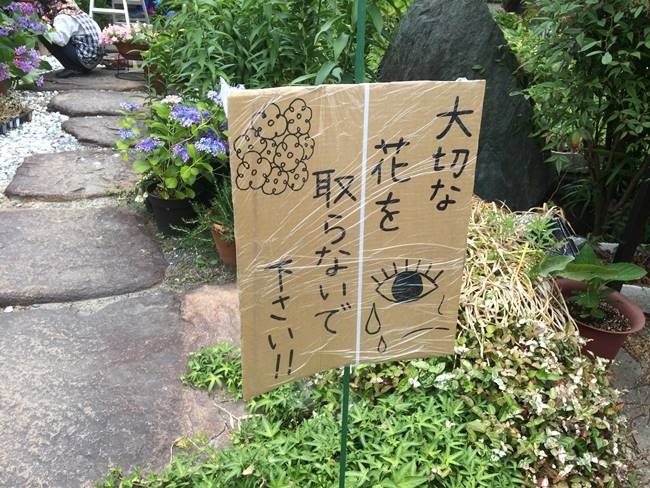 大切な
花を
取らないで
下さい!!